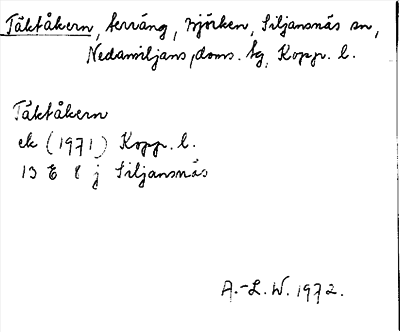 Täktåkern, terräng, Björken, Siljansnäs sn,
Nedansiljans doms. tg, Kopp. l.
Täktåkern
ek (1971) Kopp. l.
13 E 8 j Siljansnäs
A.-L. W. 1972.